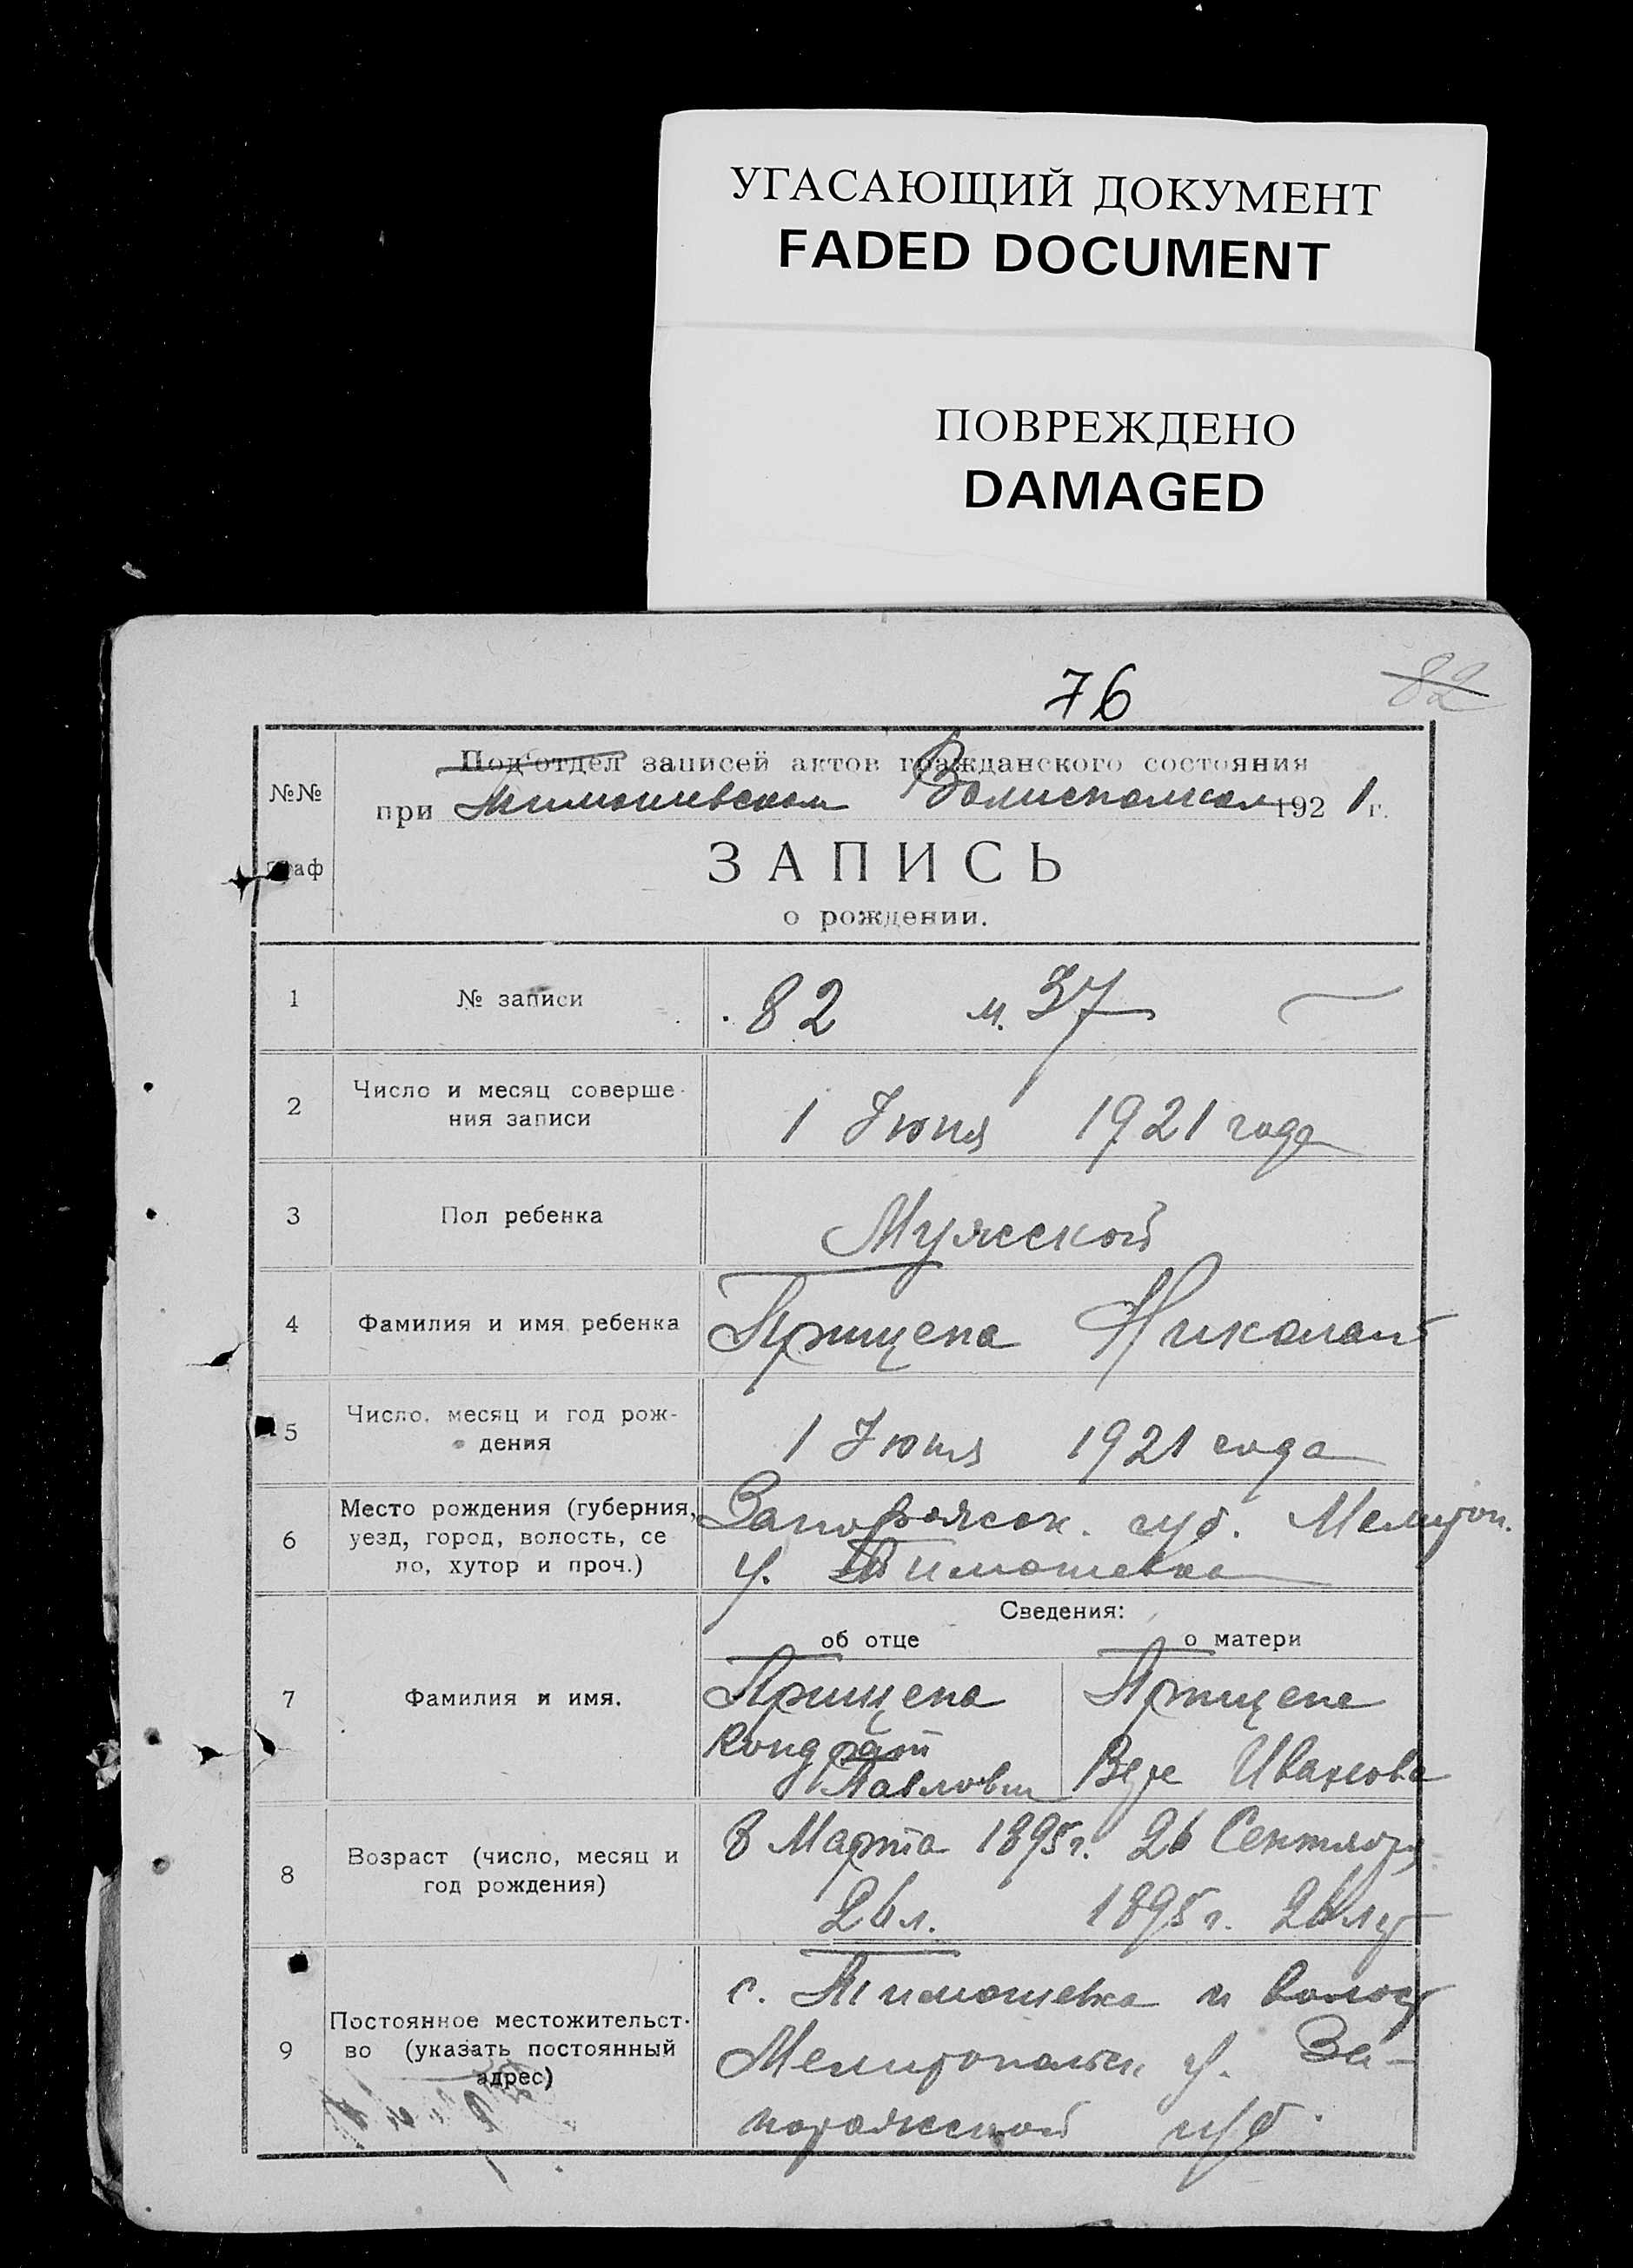 УГАСАЮЩИЙ ДОКУМЕНТ
FADED DOCUMENT
ПОВРЕЖДЕНО
DAMAGED
76
82
Под'отдел записей актов гражданского состояния
№№
при Тимошевском Волисполкоме 1921 г.
граф
ЗАПИСЬ
о рождении.
1
№ записи
82 м. 37
2
Число и месяц соверше-
ния записи
1 Июня 1921 года
3
Пол ребенка
Мужской
4
Фамилия и имя ребенка
Прищепа Николай
5
Число, месяц и год рож-
дения
1 Июня 1921 года
6
Место рождения (губерния,
уезд, город, волость, се
ло, хутор и проч.)
Запорожск. губ. Мелитоп.
у. Тимошевка
Сведения:
об отце
о матери
7
Фамилия и имя.
Прищепа
Кондрат
Павлович
Прищепа
Вера Иванова
8
Возраст (число, месяц и
год рождения)
8 Марта 1895 г.
26 л.
26 Сентября
1895 г. 26 лет
9
Постоянное местожительст-
во (указать постоянный
адрес)
с. Тимошевка и волост
Мелитопольск у. За-
порожской губ.